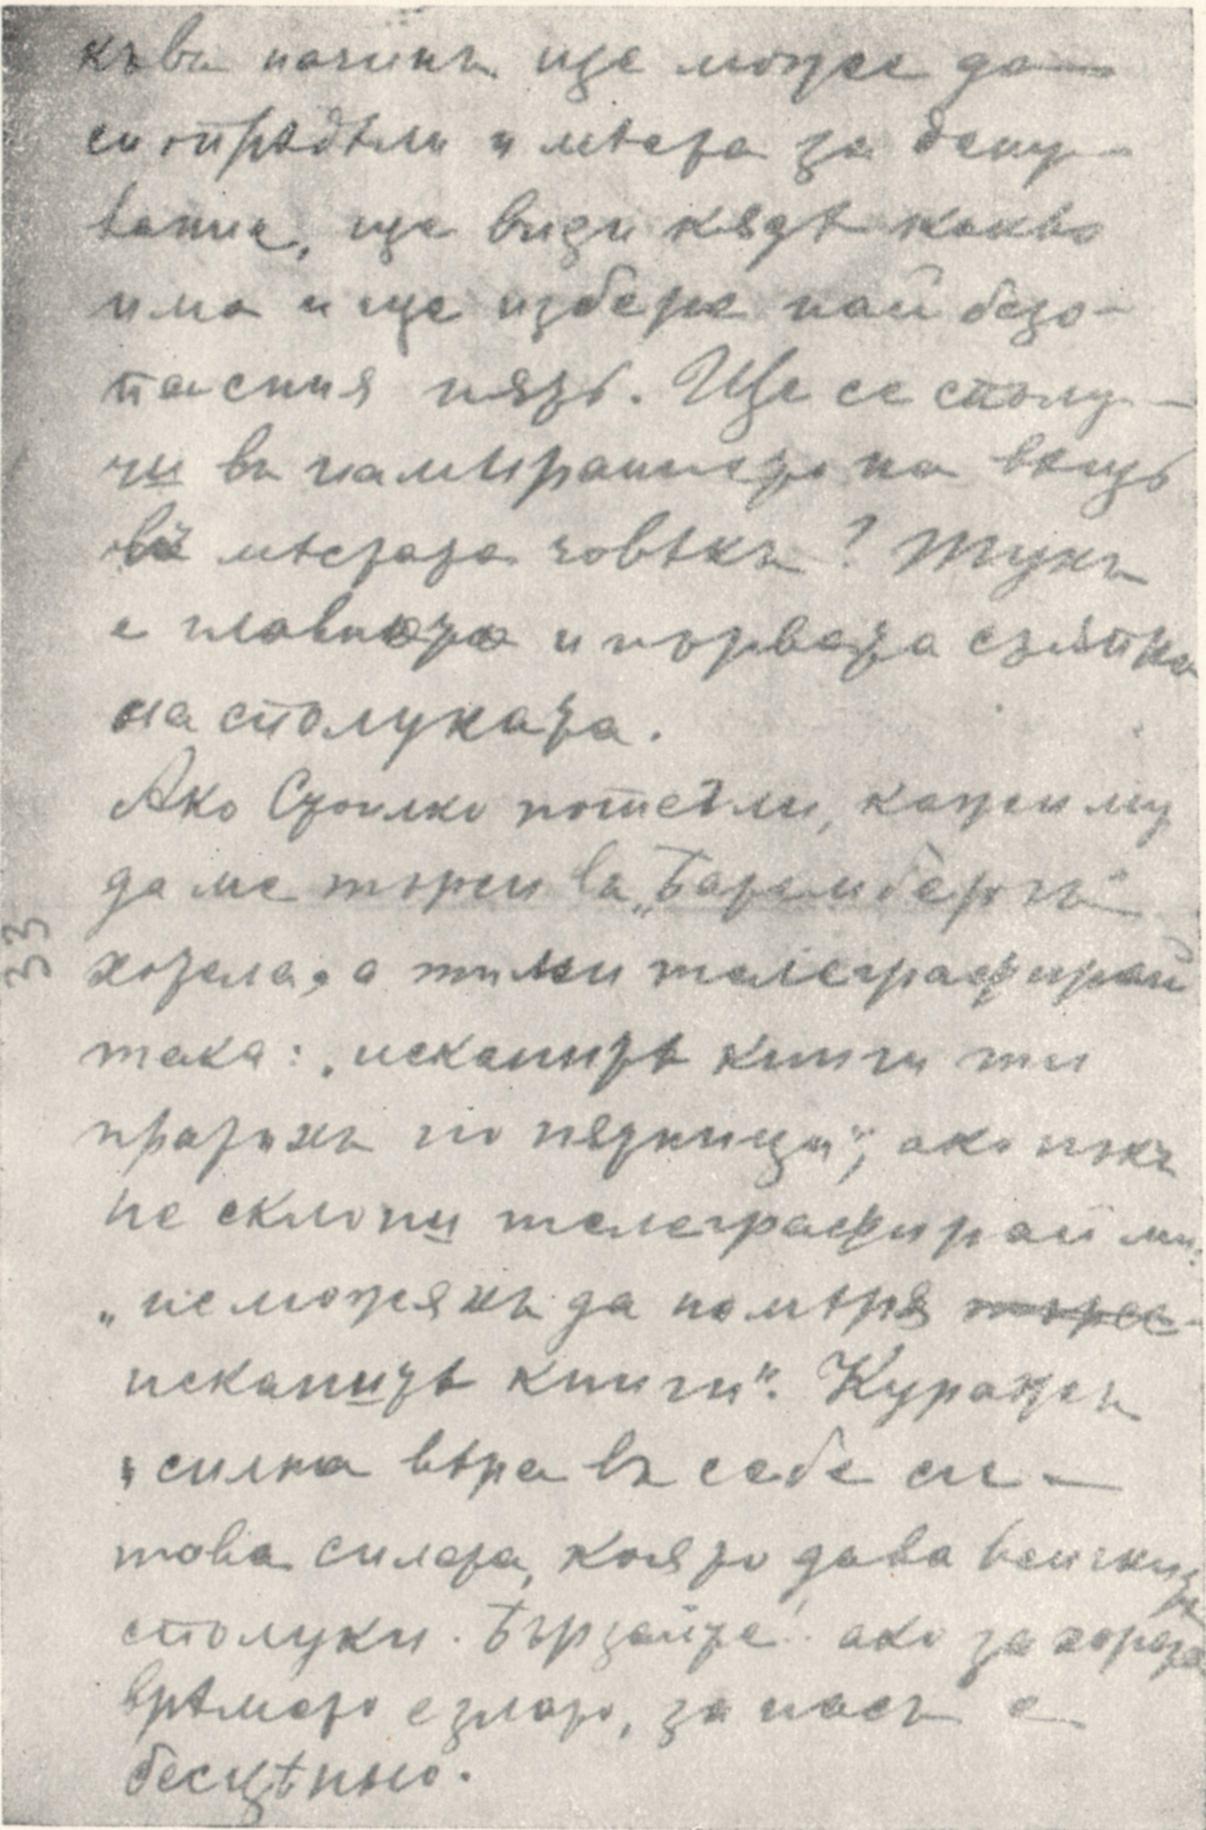 къвъ начинъ ще може да
си опрѣдѣли и мѣста за дену-
вание, ще види кѫдѣ какво
има и ще избере най безо-
пасния пѫть. Ще се сполу-
чи въ намиранието на вещъ
въ мѣстата човѣкъ? Тукъ
е главната и първата сгло́бка
на сполуката.
Ако Стоилко потегли, кажи му
да ме търси въ „Батембергъ"
хотела, а ти ми телеграфирай
така: „исканитѣ книги ти
пратихъ по пѫтници", ако пъкъ
не склони телеграфирай ми:
„не можяхъ да намѣря
исканитѣ книги". Куражъ
и силна вѣра въ себе си —
това силата, която дава всичкитѣ
сполуки. Бързайте! ако за хората
врѣмето е злато, за насъ е
безцѣнно.
33